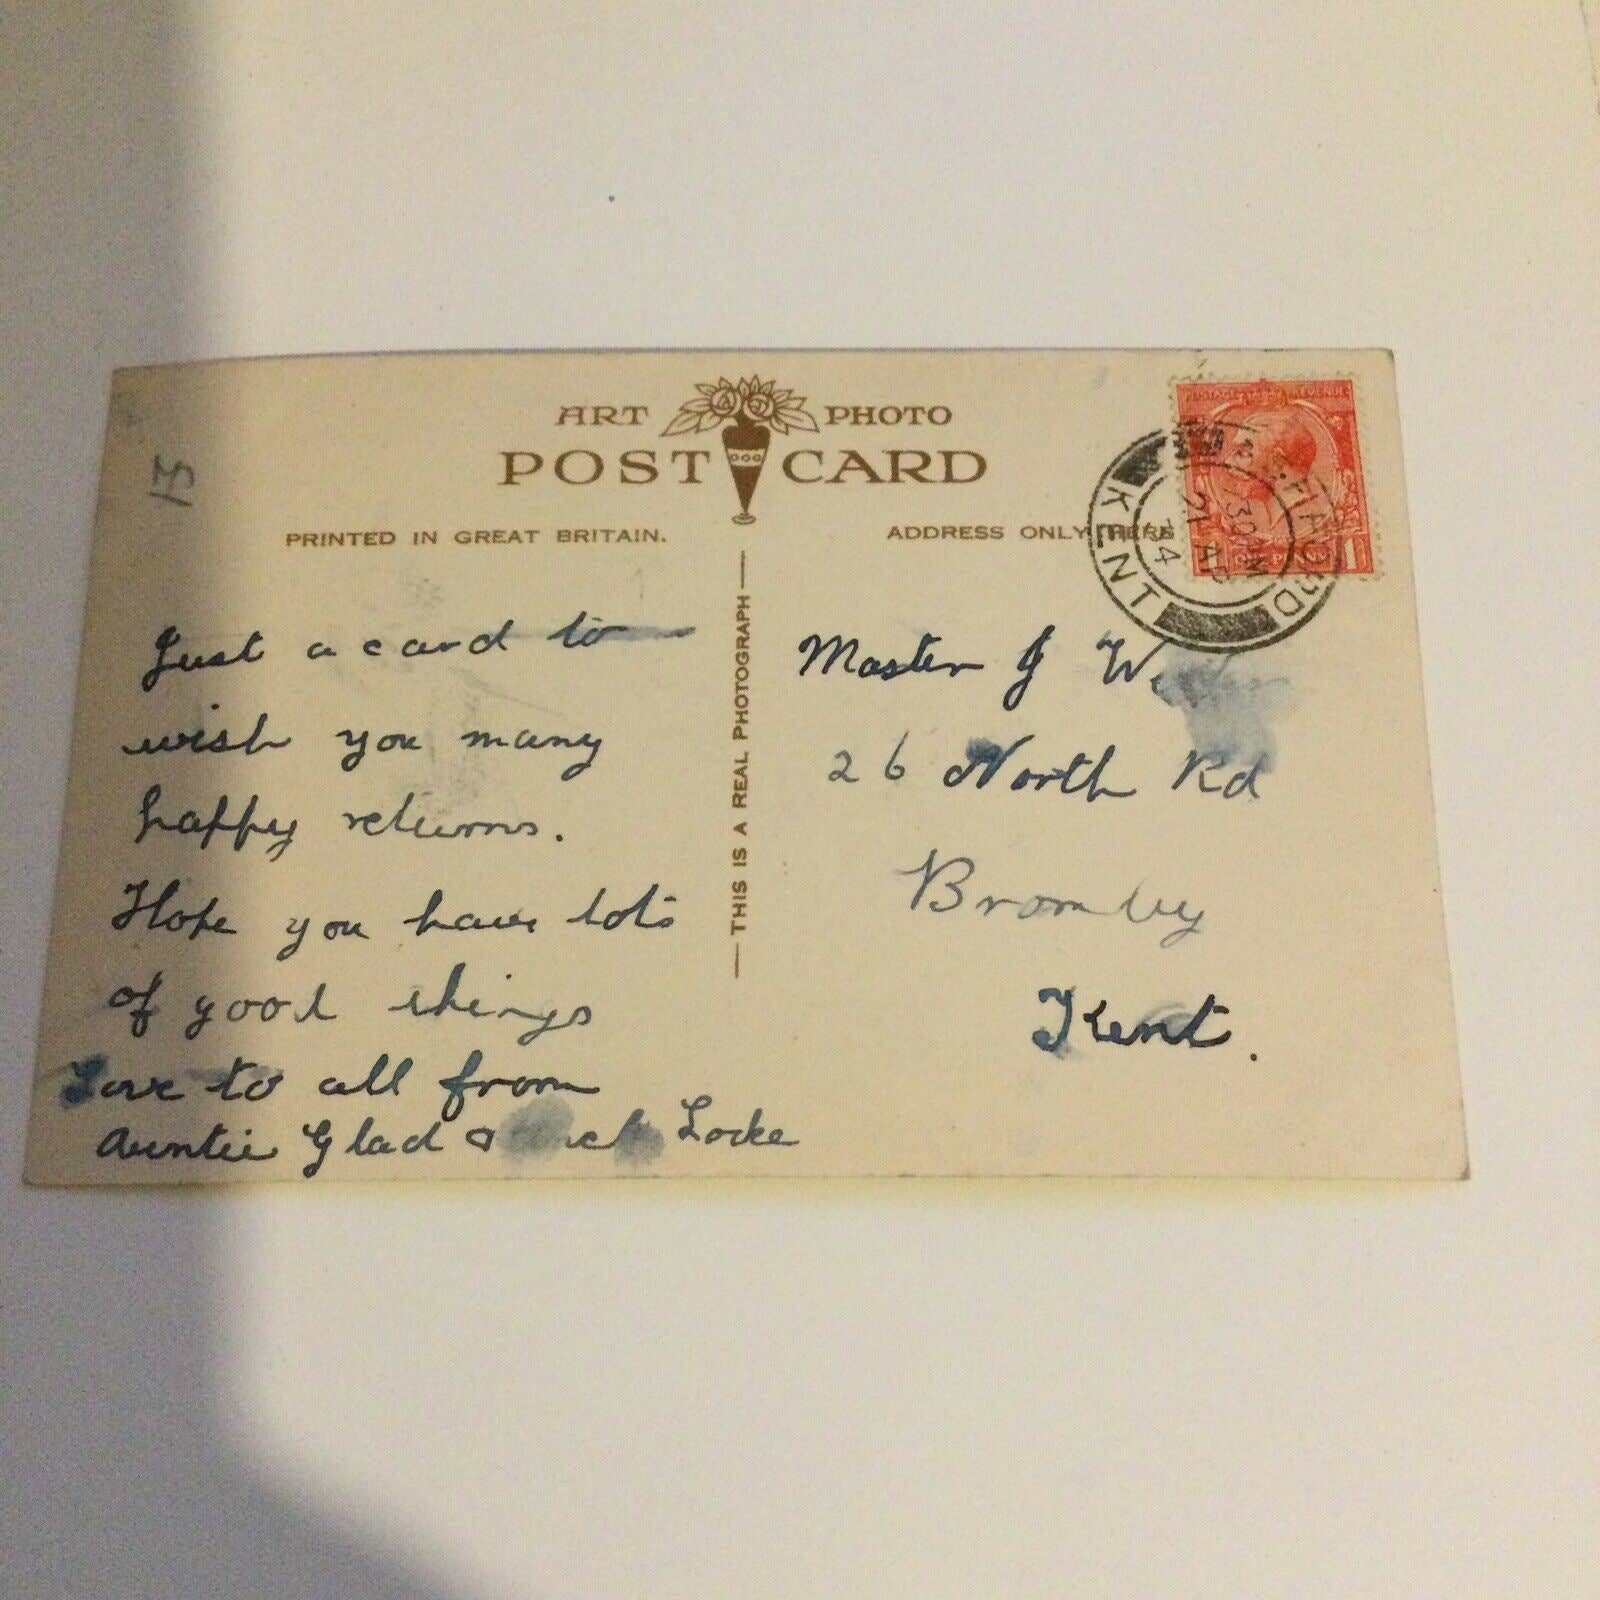 13
ART PHOTO
POST CARD
PRINTED IN GREAT BRITAIN.
ADDRESS ONLY HERE
THIS IS A REAL PHOTOGRAPH
POSTAGE REVENUE
1 1
KENT
7 30 AM
21 AP
34
Just a card to
wish you many
happy returns.
Hope you have lots
of good things
Love to all from
Auntie Glad Locke
Master J
26 North Rd
Bromley
Kent.